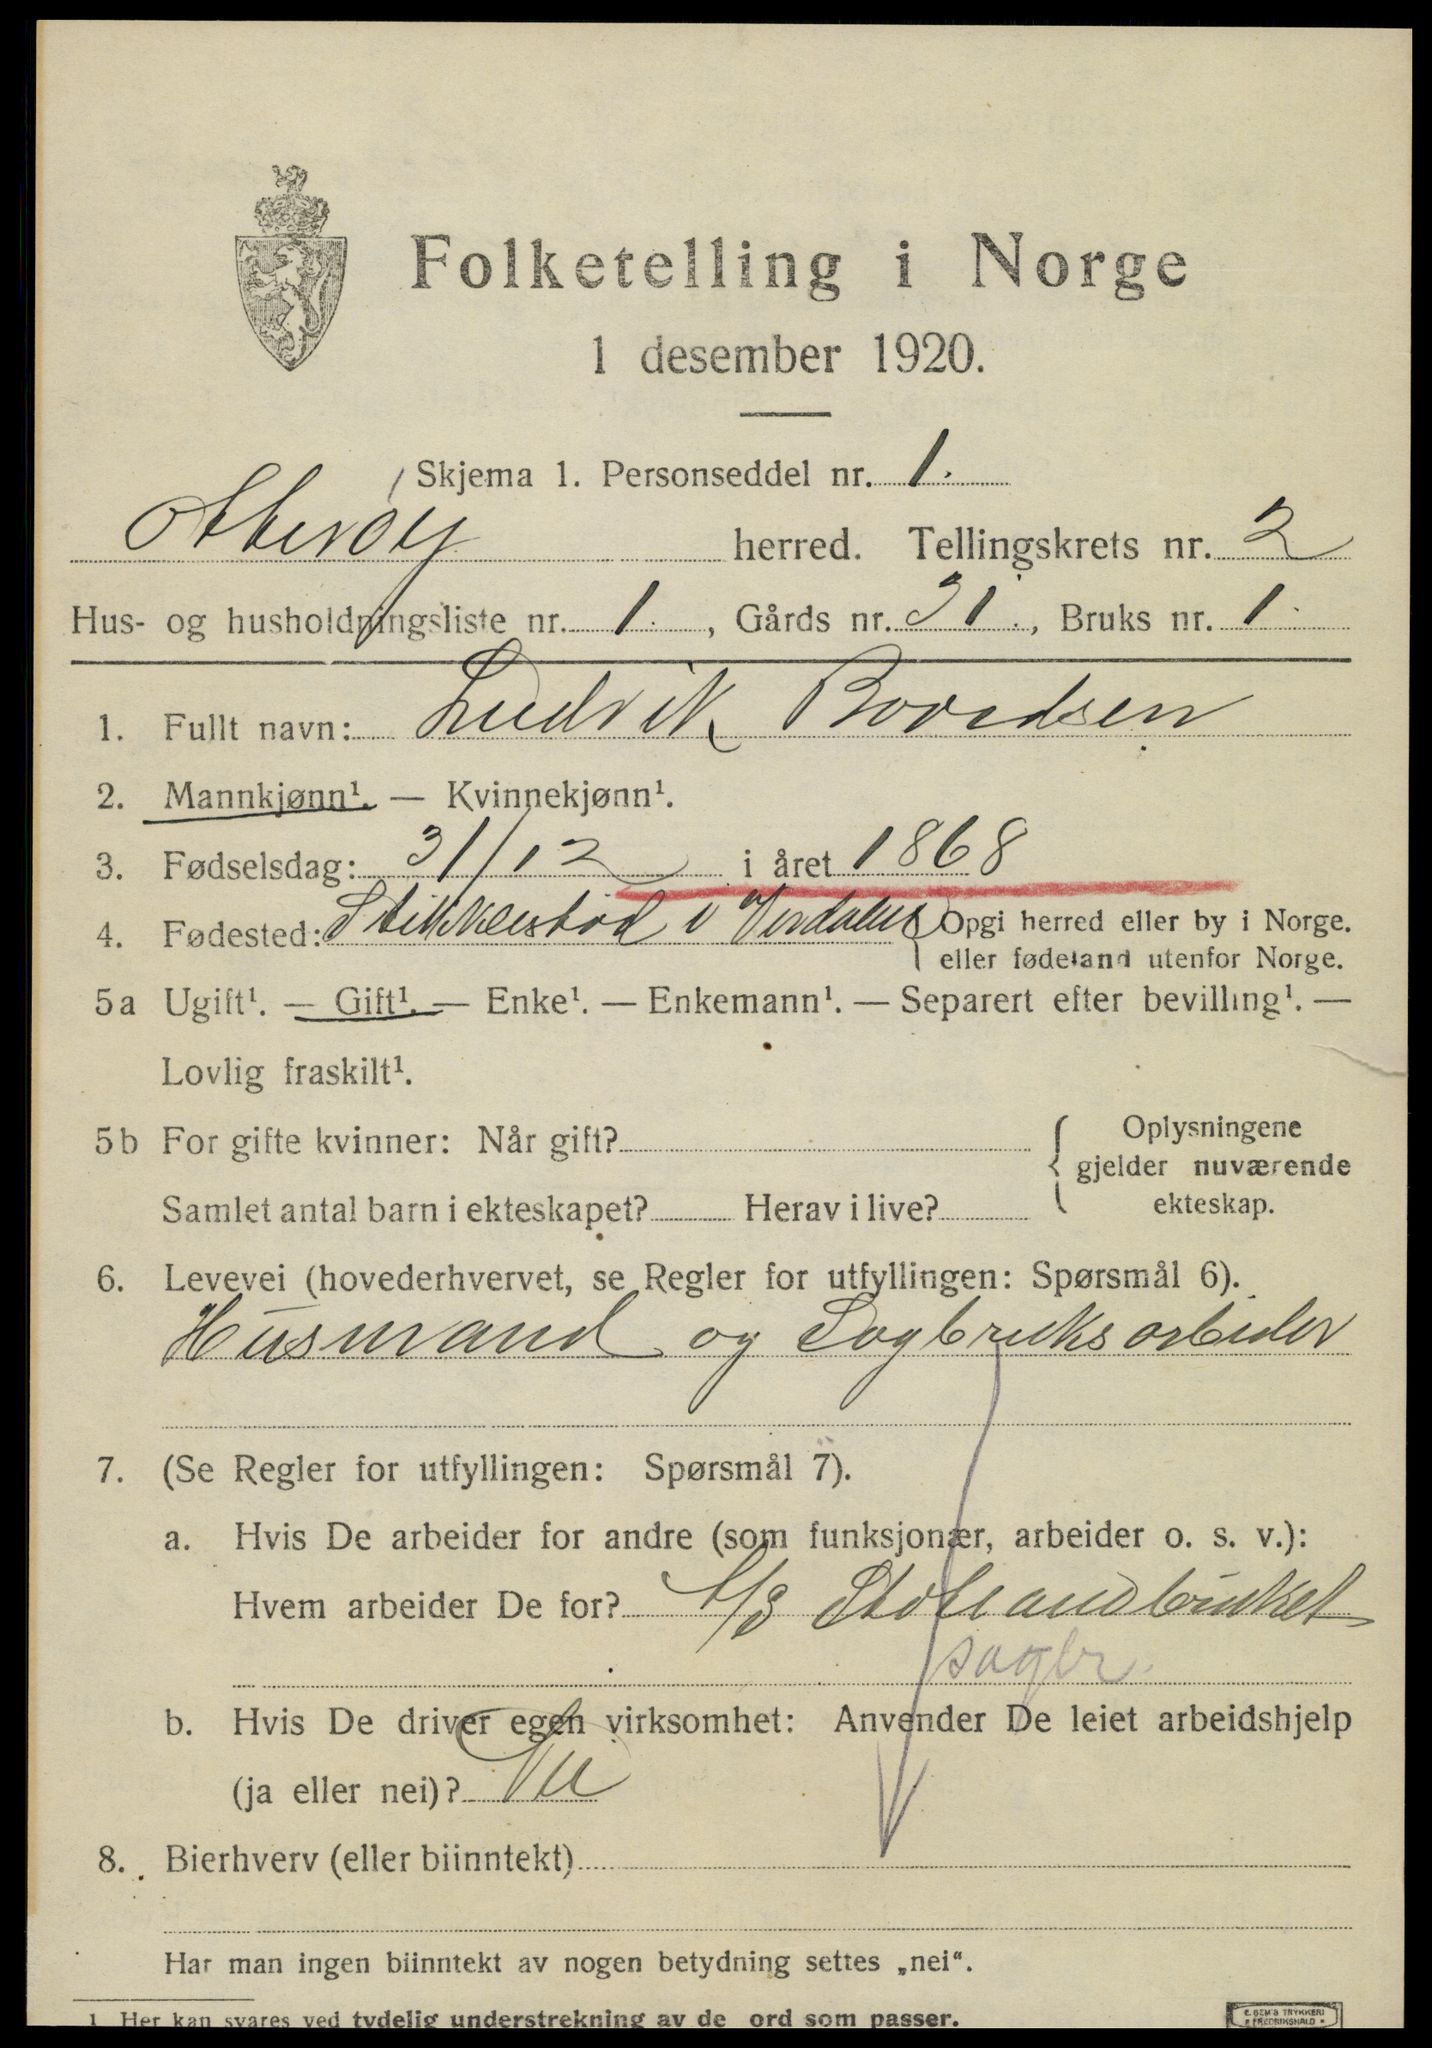 Folketelling i Norge
1 desember 1920.
Skjema 1. Personseddel nr. 1.
Otterøy herred. Tellingskrets nr. 2
Hus- og husholdningsliste nr. 1. , Gårds nr. 31. , Bruks nr. 1.
1. Fullt navn: Ludvik Bovedsen
2. Mannkjønn¹. — Kvinnekjønn¹.
3. Fødselsdag: 31/12 i året 1868
4. Fødested: Stikkelstad i Verdalen { Opgi herred eller by i Norge.
eller fødeland utenfor Norge.
5a Ugift¹. — Gift¹. — Enke¹. — Enkemann¹. — Separert efter bevilling¹. —
Lovlig fraskilt¹.
5b For gifte kvinner: Når gift?
Samlet antal barn i ekteskapet? Herav i live?
{ Oplysningene
gjelder nuværende
ekteskap.
6. Levevei (hovederhvervet, se Regler for utfyllingen: Spørsmål 6).
Husmand og Sagbruksarbeider
7. (Se Regler for utfyllingen: Spørsmål 7).
a. Hvis De arbeider for andre (som funksjonær, arbeider o. s. v.):
Hvem arbeider De for? A/S
sagbr.
b. Hvis De driver egen virksomhet: Anvender De leiet arbeidshjelp
(ja eller nei)? Nei
8. Bierhverv (eller biinntekt)
Har man ingen biinntekt av nogen betydning settes „nei“.
1 Her kan svares ved tydelig understrekning av de ord som passer.
E. SEM'S TRYKKERI
FREDRIKSHALD